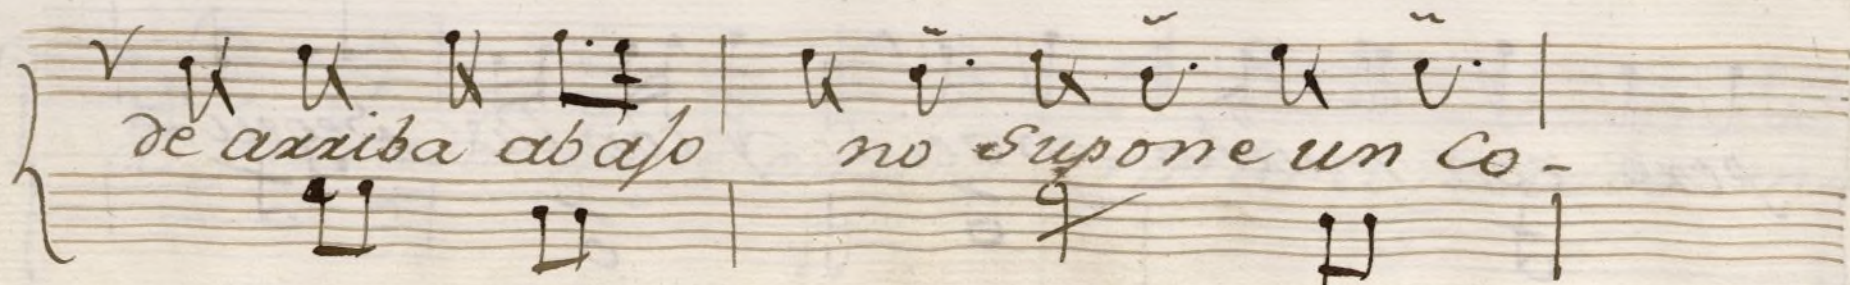 de arriba abaſo no Supone un Co-